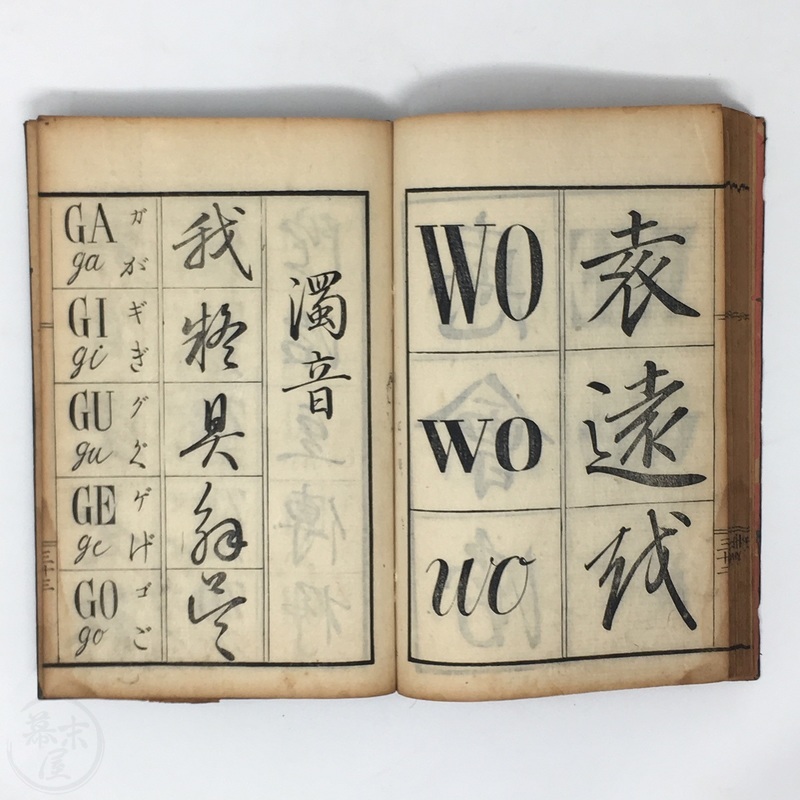 袁
遠
越
WO
wo
wo
三十二
濁音
我
具
解
呉
GA ガ
ga が
GI ギ
gi ぎ
GU グ
gu ぐ
GE ゲ
ge げ
GO ゴ
go ご
三十三
幕末屋